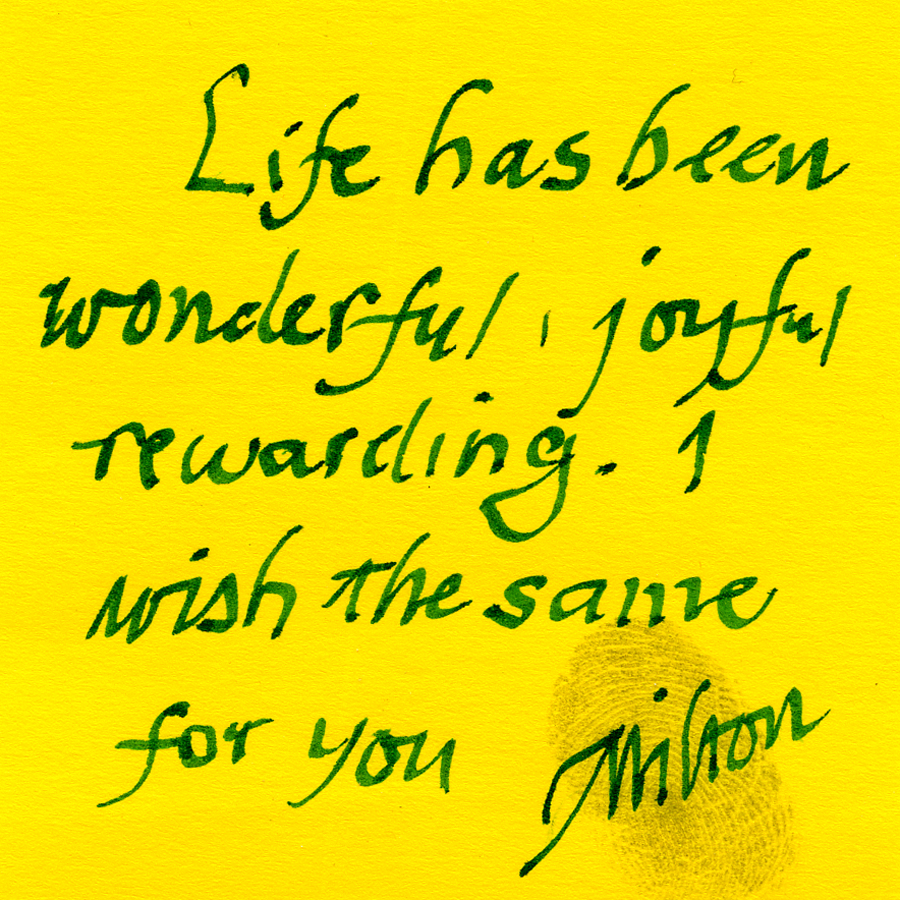 Life has been
wonderful, joyful
rewarding. I
wish the same
for you Milton